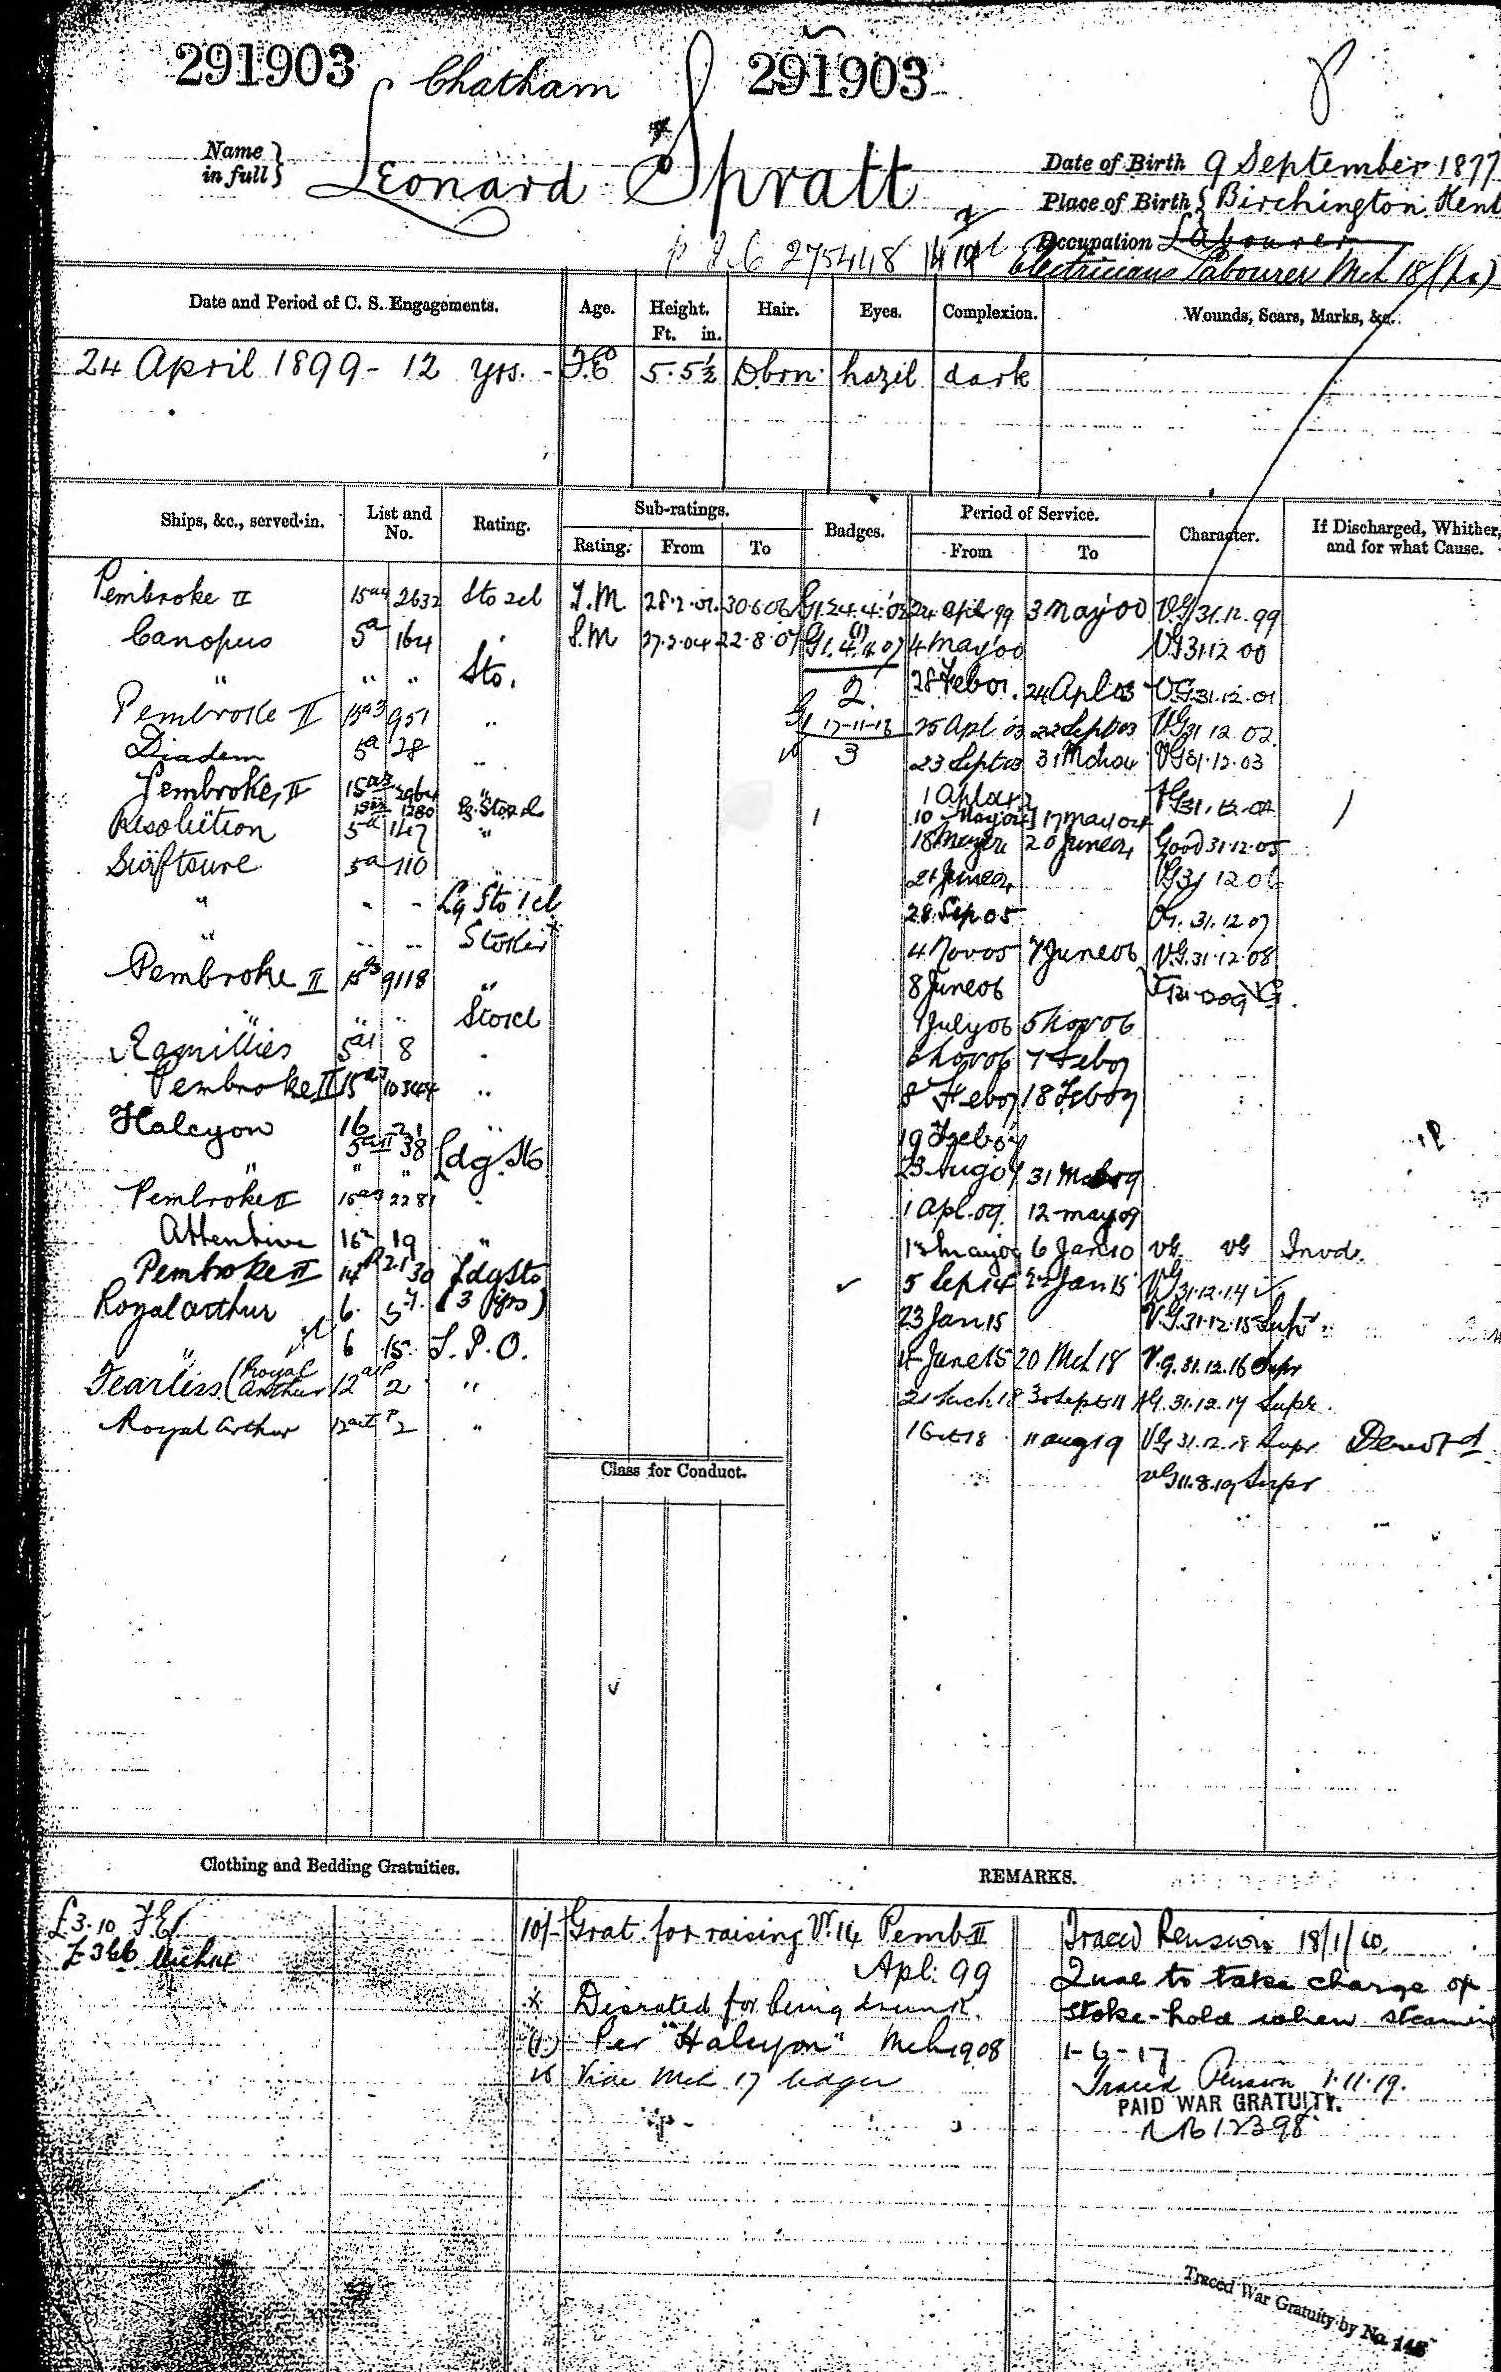 291903 Chatham 291903
Name in full } Leonard Spratt
Date of Birth 9 September 1877
Place of Birth { Birchington Kent
Occupation Labourer
275448
Electricians Labourer Mch 18
Date and Period of C. S. Engagements. Age. Height. Ft. in. Hair. Eyes. Complexion. Wounds, Scars, Marks, &c.
24 April 1899 - 12 yrs. - 5.5½ D brn. hazel dark
Ships, &c., served in. List and No. Rating. Sub-ratings. Rating. From To Badges. Period of Service. From To Character. If Discharged, Whither, and for what Cause.
Pembroke II 2632 Sto 2cl S.M. 30.6.06 24 Apl 99 3 May 00 VG 31.12.99
Canopus 5a 164 " S.M 27.2.04 22.8.07 4 May 00 VG 31.12.00
" " " Sto. 2 28 Feb 01. 24 Apl 03 VG 31.12.01
Pembroke II 15a3 951 " 17-11-12 25 Apl 03 22 Sept 03 VG 31 12 02
Diadem 5a 28 " 3 23 Sept 03 31 Mch 04 VG 31.12.03
Pembroke II 15a3 " 1 Apl 04 VG 31.12.04
1280 10 May 04 17 May 04
Resolution 5a 147 " 18 May 04 20 June 04 Good 31.12.05
Swiftsure 5a 110 21 June 04 VG 31 12 06
" " " Lg Sto 1cl 28 Sep 05 31.12.07
" " " Stoker 4 Nov 05 7 June 06 VG 31.12.08
Pembroke II 9118 " 8 June 06
" " " Sto 1cl 1 July 06 5 Nov 06
Ramillies 5a1 8 " 6 Nov 06 7 Feb 07
Pembroke II 15a3 10344 " 8 Feb 07 18 Feb 07
Halcyon 16 21 " 19 Feb 07
5a II 38
" " " Ldg. Sto 23 Aug 07 31 Mch 09
Pembroke II 15a3 2281 " 1 Apl. 09 12 May 09
Attentive 16a 19 " 13 May 09 6 Jan 10 VG. VG Invd.
Pembroke II 14 30 Ldg Sto 5 Sep 14 22 Jan 15 VG 31.12.14
Royal Arthur 6. 57. (3 yrs) 23 Jan 15 VG 31.12.15 Supr.
" 6 15 S. P. O. June 15 20 Mch 18 V.G. 31.12.16 Supr
Fearless (Royal Arthur 12a 2 " 21 Mch. 18 VG. 31.12.17 Supr.
Royal Arthur 2 " 1 Oct 18 11 Aug 19 VG 31.12.18 Supr
VG 11.8.19 Supr
Class for Conduct.
Clothing and Bedding Gratuities. REMARKS.
£3.10
10/- Grat. for raising Vr. 14 Pemb II
Apl: 99
x Disrated for being drunk.
(1) Per "Halcyon" Mch 1908
Vide Mch 17 ledger
Traced Pension 18/1/10.
Qual to take charge of
Stoke-hold when steaming
1-6-17
Traced Pension 1.11.19.
PAID WAR GRATUITY.
Traced War Gratuity by No.